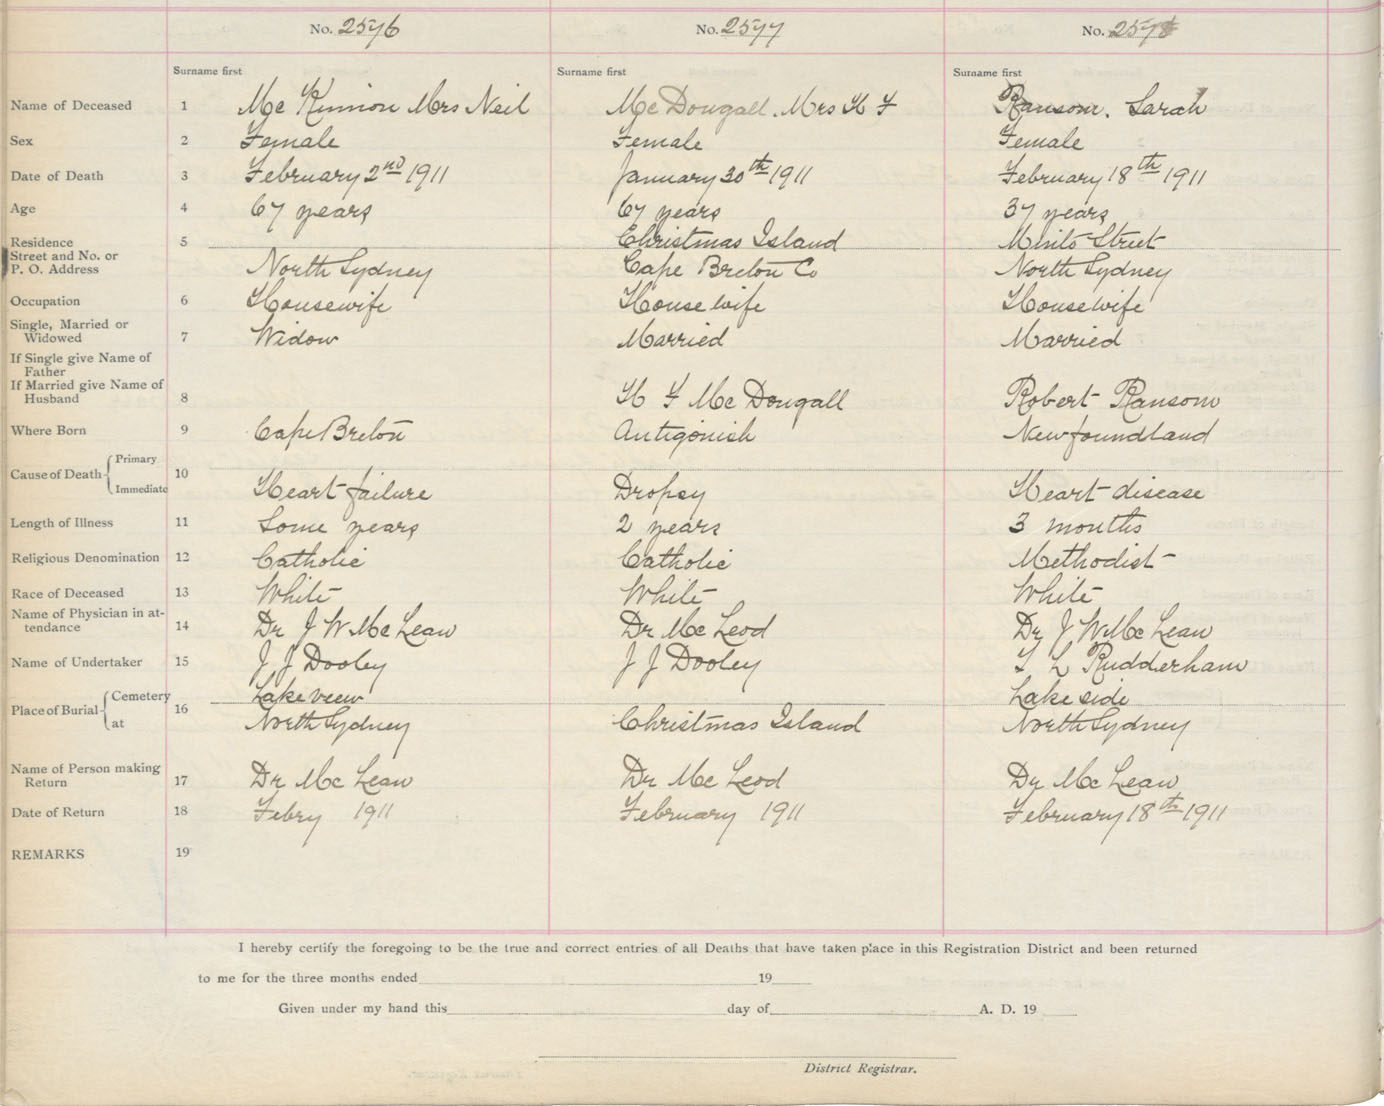 No. 2576 No. 2577 No. 2578
Surname first Surname first Surname first
Name of Deceased 1 Mc Kinnon Mrs Neil McDougall. Mrs H F Ransom. Sarah
Sex 2 Female Female Female
Date of Death 3 February 2nd 1911 January 30th 1911 February 18th 1911
Age 4 67 years 67 years 37 years
Residence 5 Christmas Island Minto Street
Street and No. or
P. O. Address North Sydney Cape Breton Co North Sydney
Occupation 6 Housewife Housewife Housewife
Single, Married or
Widowed 7 Widow Married Married
If Single give Name of
Father
If Married give Name of
Husband 8 H F McDougall Robert Ransom
Where Born 9 Cape Breton Antigonish Newfoundland
Cause of Death Primary 10
Immediate Heart failure Dropsy Heart disease
Length of Illness 11 Some years 2 years 3 months
Religious Denomination 12 Catholic Catholic Methodist
Race of Deceased 13 White White White
Name of Physician in at-
tendance 14 Dr J W McLean Dr McLeod Dr J W McLean
Name of Undertaker 15 J J Dooley J J Dooley L Rudderham
Place of Burial Cemetery 16 Lakeview Lakeside
at North Sydney Christmas Island North Sydney
Name of Person making
Return 17 Dr McLean Dr McLeod Dr McLean
Date of Return 18 Febry 1911 February 1911 February 18th 1911
REMARKS 19
I hereby certify the foregoing to be the true and correct entries of all Deaths that have taken place in this Registration District and been returned
to me for the three months ended 19
Given under my hand this day of A. D. 19
District Registrar.